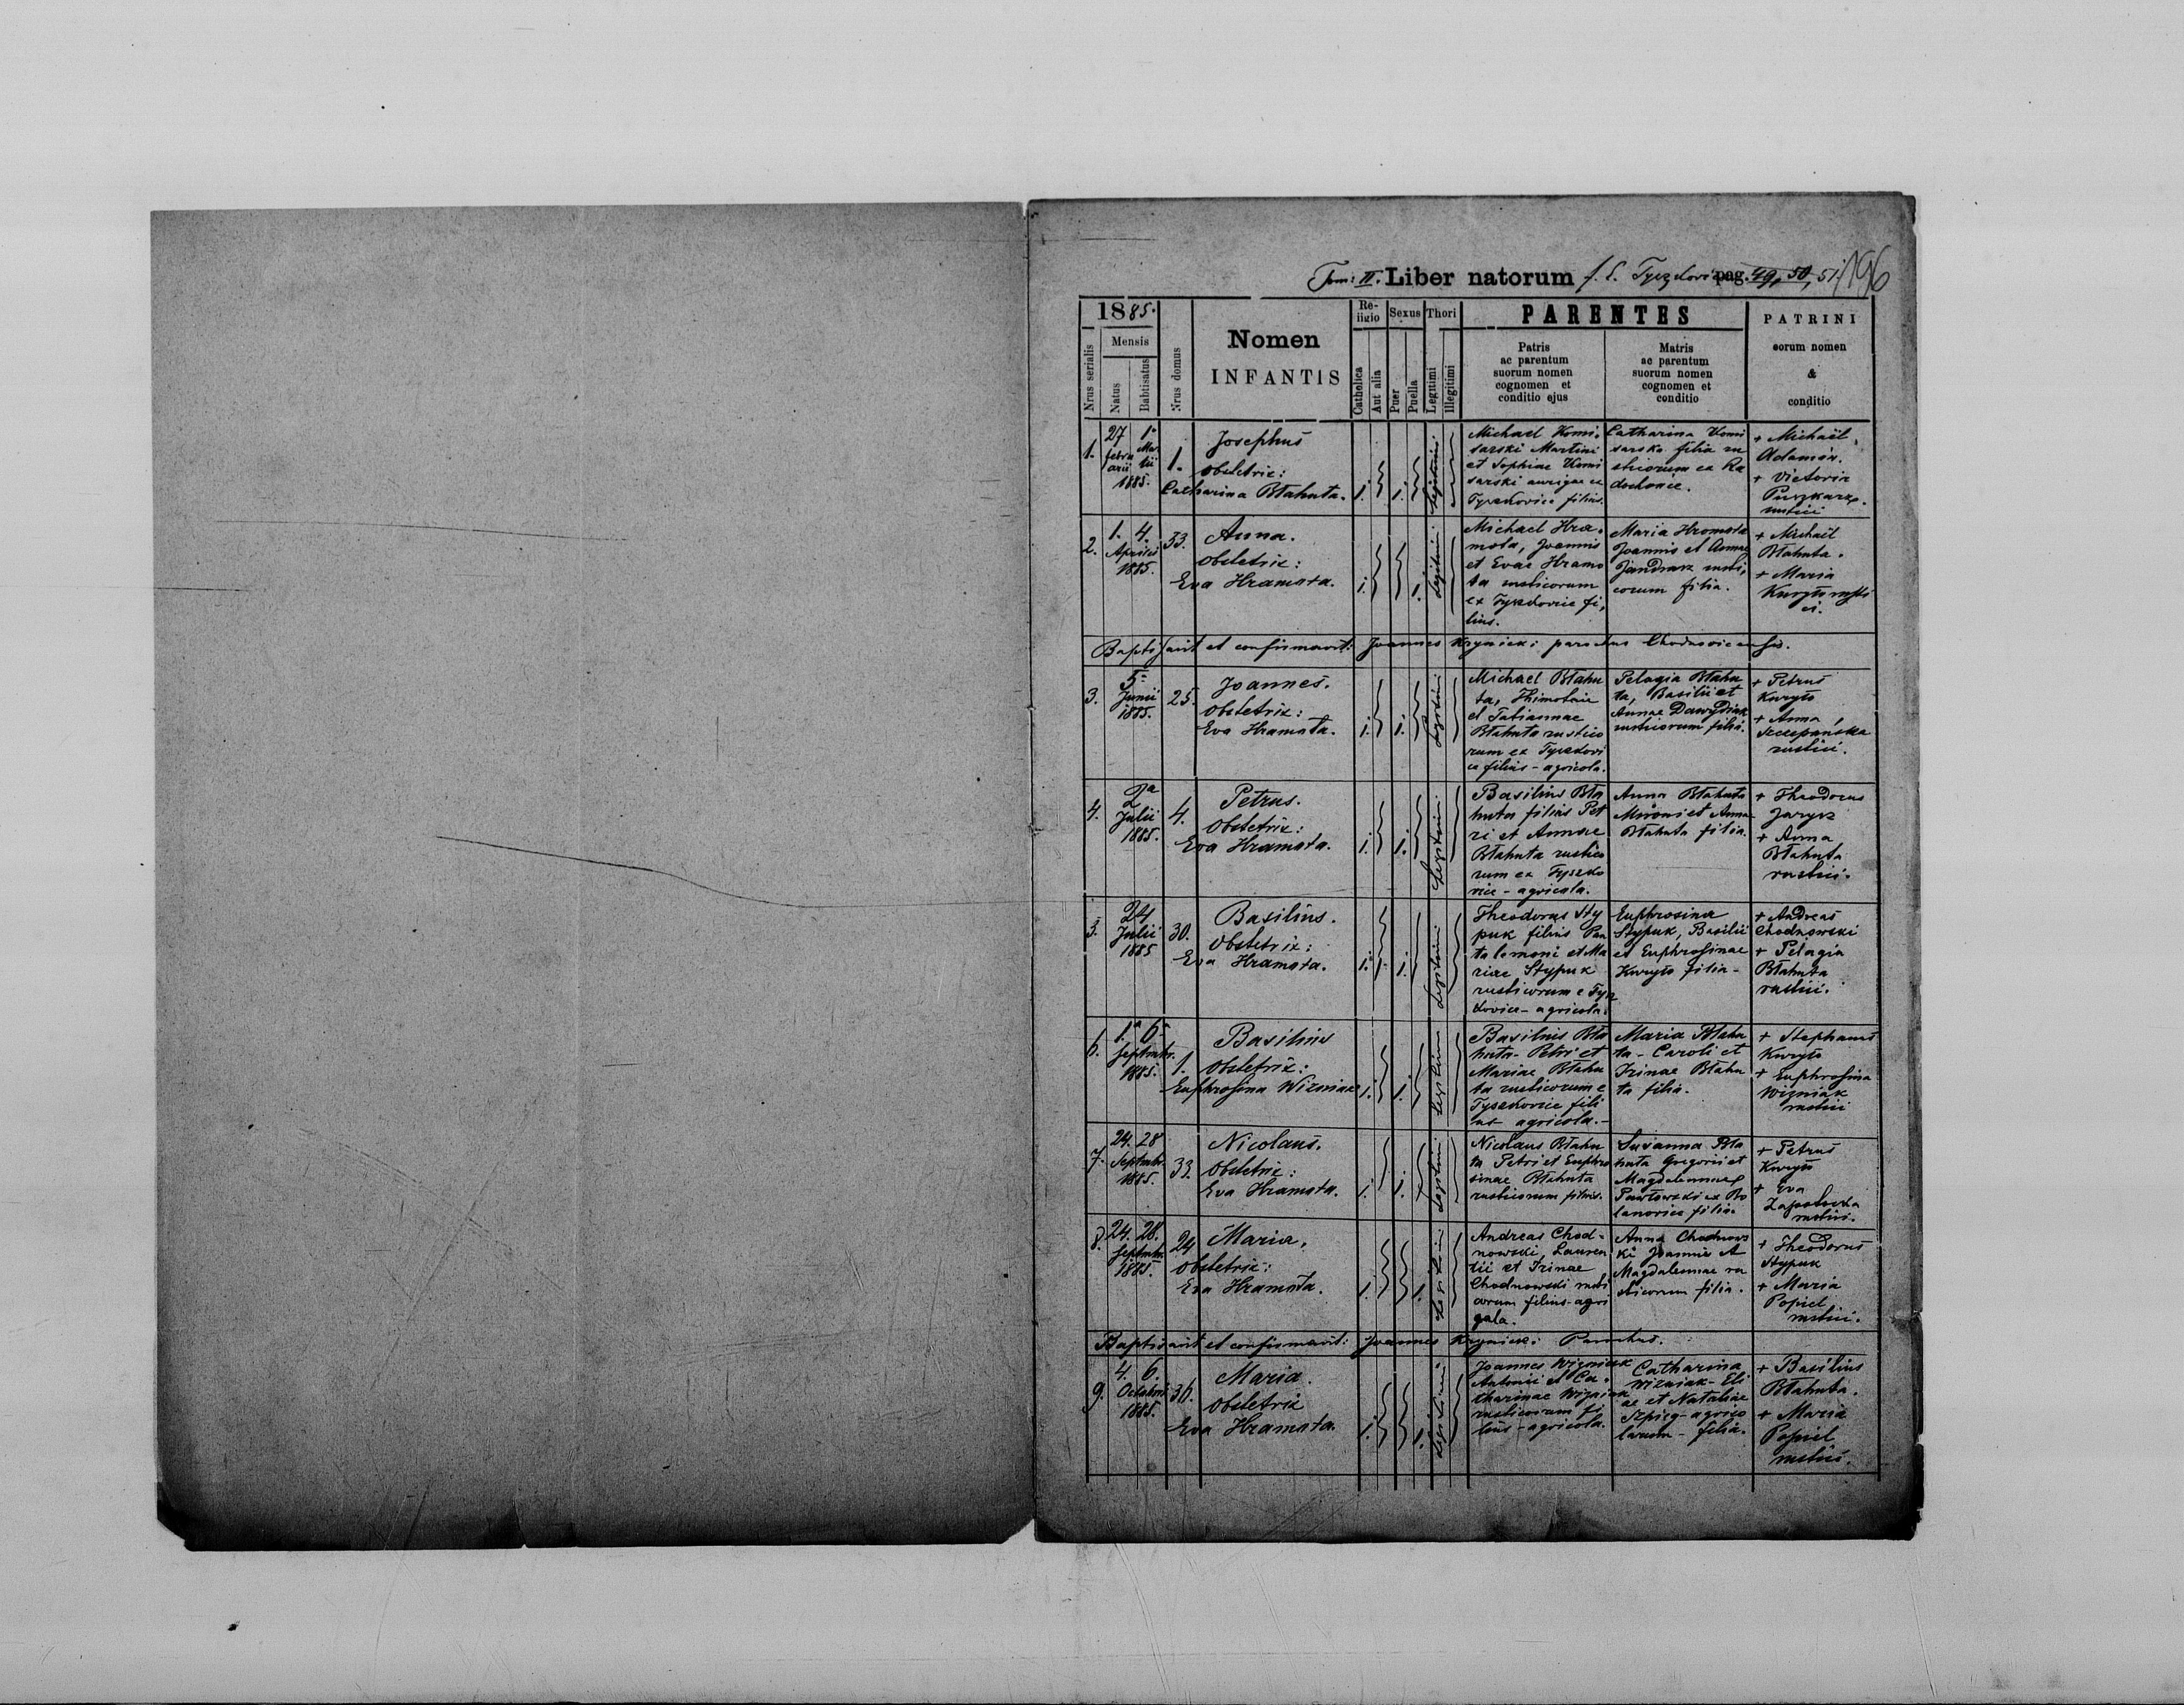 Tom: II. Liber natorum f. E. Tyszkovi pag. 49, 50, 51. 196
1885.
Mensis
Nrus serialis
Natus
Babtisatus
Nrus domus
Nomen
INFANTIS
Re-
ligio
Catholica
Aut alia
Sexus
Puer
Puella
Thori
Legitimi
Illegitimi
PARENTES
Patris
ac parentum
suorum nomen
cognomen et
conditio ejus
Matris
ac parentum
suorum nomen
cognomen et
conditio
PATRINI
eorum nomen
&
conditio
1.
27 1a
febru Mar
arii tii
1885.
1.
Josephus
Obstetrix:
Catharina Błahuta.
1. 1.
Legitimi
Michael Komi-
sarski Martini
et Sophiae Komi
sarski aurigae ex
Tyszkovice filius.
Catharina Komi
sarska filia ru
sticorum ex Ra
dochonce.
+ Michaël
Adamin.
+ Victoria
Puszkarz.
rustici
2.
1. 4.
Aprilis
1885.
33.
Anna.
Obstetrix:
Eva Hramota.
1. 1.
Legitimi
Michael Hra-
mota, Joannis
et Evae Hramo
ta rusticorum
ex Tyszkovice fi,
lius.
Maria Hromota
Joannis et Annae
Jandrasz rusti,
corum filia.
+ Michaël
Błahuta.
+ Maria
Kuryło rusti
ci.
Baptisavit et confirmavit: Joannes Krynicki parochus Chodnovicensis.
3.
5a
Junii
1885.
25.
Joannes.
Obstetrix:
Eva Hramota.
1. 1.
Legitimi
Michael Błahu
ta, Thimotaei
et Tatiannae
Błahuta rustico
rum ex Tyszkovi
ce filius - agricola.
Pelagia Błahu
ta, Basilii et
Annae Dawydiak
rusticorum filia.
+ Petrus
Kuryło
+ Anna
Szczepańska
rustici.
4.
2a
Julii
1885.
4.
Petrus.
Obstetrix:
Eva Hramota.
1. 1.
Legitimi
Basilius Bła
huta filius Pet
ri et Annae
Błahuta rustico
rum ex Tyszko
vice - agricola.
Anna Błahuta
Mironi et Annae
Błahuta filia.
+ Theodorus
Jarysz
+ Anna
Błahuta
rustici.
5.
24
Julii
1885
30.
Basilius.
Obstetrix:
Eva Hramota.
1. 1.
Legitimi
Theodorus Sty
puk filius Pan
talemoni et Ma
riae Stypuk
rusticorum e Tysz
kovice - agricola.
Euphrosina
Stypuk, Basilii
et Euphrosinae
Kuryło filia -
+ Andreas
Chodnowski
+ Pelagia
Błahuta
rustici.
6.
1a 6a
Septembr.
1885.
1.
Basilius
Obstetrix:
Euphrosina Wizniak
1. 1.
Legitimi
Basilius Bła
huta - Petri et
Mariae Błahu
ta rusticorum e
Tyszkovice fili
us agricola. -
Maria Błahu
ta - Caroli et
Irinae Błahu
ta filia.
+ Stephanus
Kuryło
+ Euphrosina
Wizniak
rustici
7.
24. 28
Septembr.
1885.
33.
Nicolaus.
Obstetrix:
Eva Hramota.
1. 1.
Legitimi
Nicolaus Błahu
ta Petri et Euphro
sinae Błahuta
rusticorum filius.
Susanna Bła
huta Gregorii et
Magdalennae
Pawłowski ex Bo
lanovice filia.
+ Petrus
Kuryło
+ Eva
rustici.
8.
24. 28.
Septembr.
1885.
24
Maria,
Obstetrix:
Eva Hramota.
1. 1.
Legitimi
Andreas Chod-
nowski, Lauren
tii et Irinae
Chodnowski rusti
corum filius - agri
gola.
Anna Chodnows
ki Joannis et
Magdalennae ru
sticorum filia.
+ Theodorus
Stypuk
+ Maria
Popiel
rustici.
Baptisavit et confirmavit: Joannes Krynicki Parochus.
9.
4. 6.
Octobris
1885.
36.
Maria.
Obstetrix
Eva Hramota.
1. 1.
Legitimi
Joannes Wizniak
Antonii et Ca-
tharinae Wizniak
rusticorum fi
lius - agricola.
Catharina
Wizniak - Eli
ae et Nataliae
Szpieg - agrico
larum - filia.
+ Basilius
Błahuta.
+ Maria
Popiel
rustici.